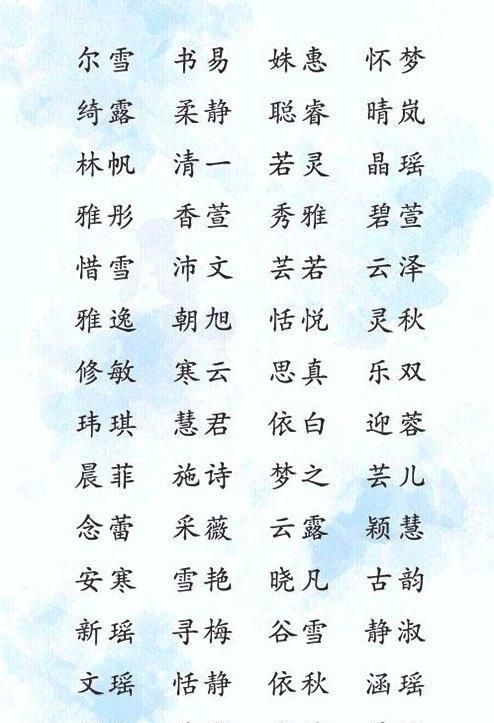 尔雪 书易 姝惠 怀梦
绮露 柔静 聪睿 晴岚
林帆 清一 若灵 晶瑶
雅彤 香萱 秀雅 碧萱
惜雪 沛文 芸若 云泽
雅逸 朝旭 恬悦 灵秋
修敏 寒云 思真 乐双
玮琪 慧君 依白 迎蓉
晨菲 施诗 梦之 芸儿
念蕾 采薇 云露 颖慧
安寒 雪艳 晓凡 古韵
新瑶 寻梅 谷雪 静淑
文瑶 恬静 依秋 涵瑶